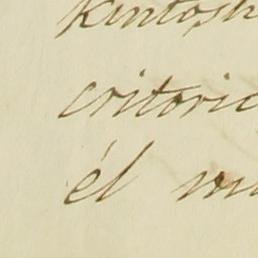 kintosh
critoric
él m